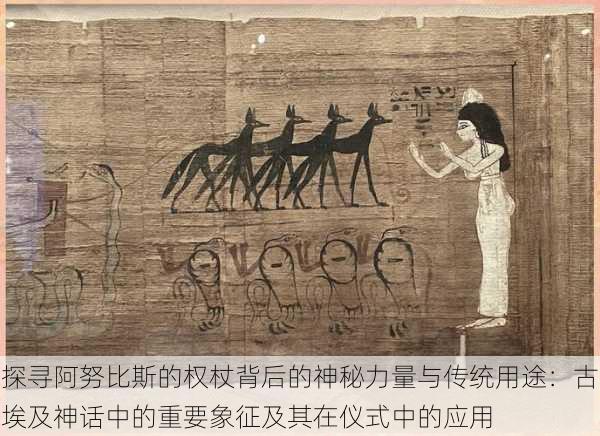 探寻阿努比斯的权杖背后的神秘力量与传统用途：古
埃及神话中的重要象征及其在仪式中的应用